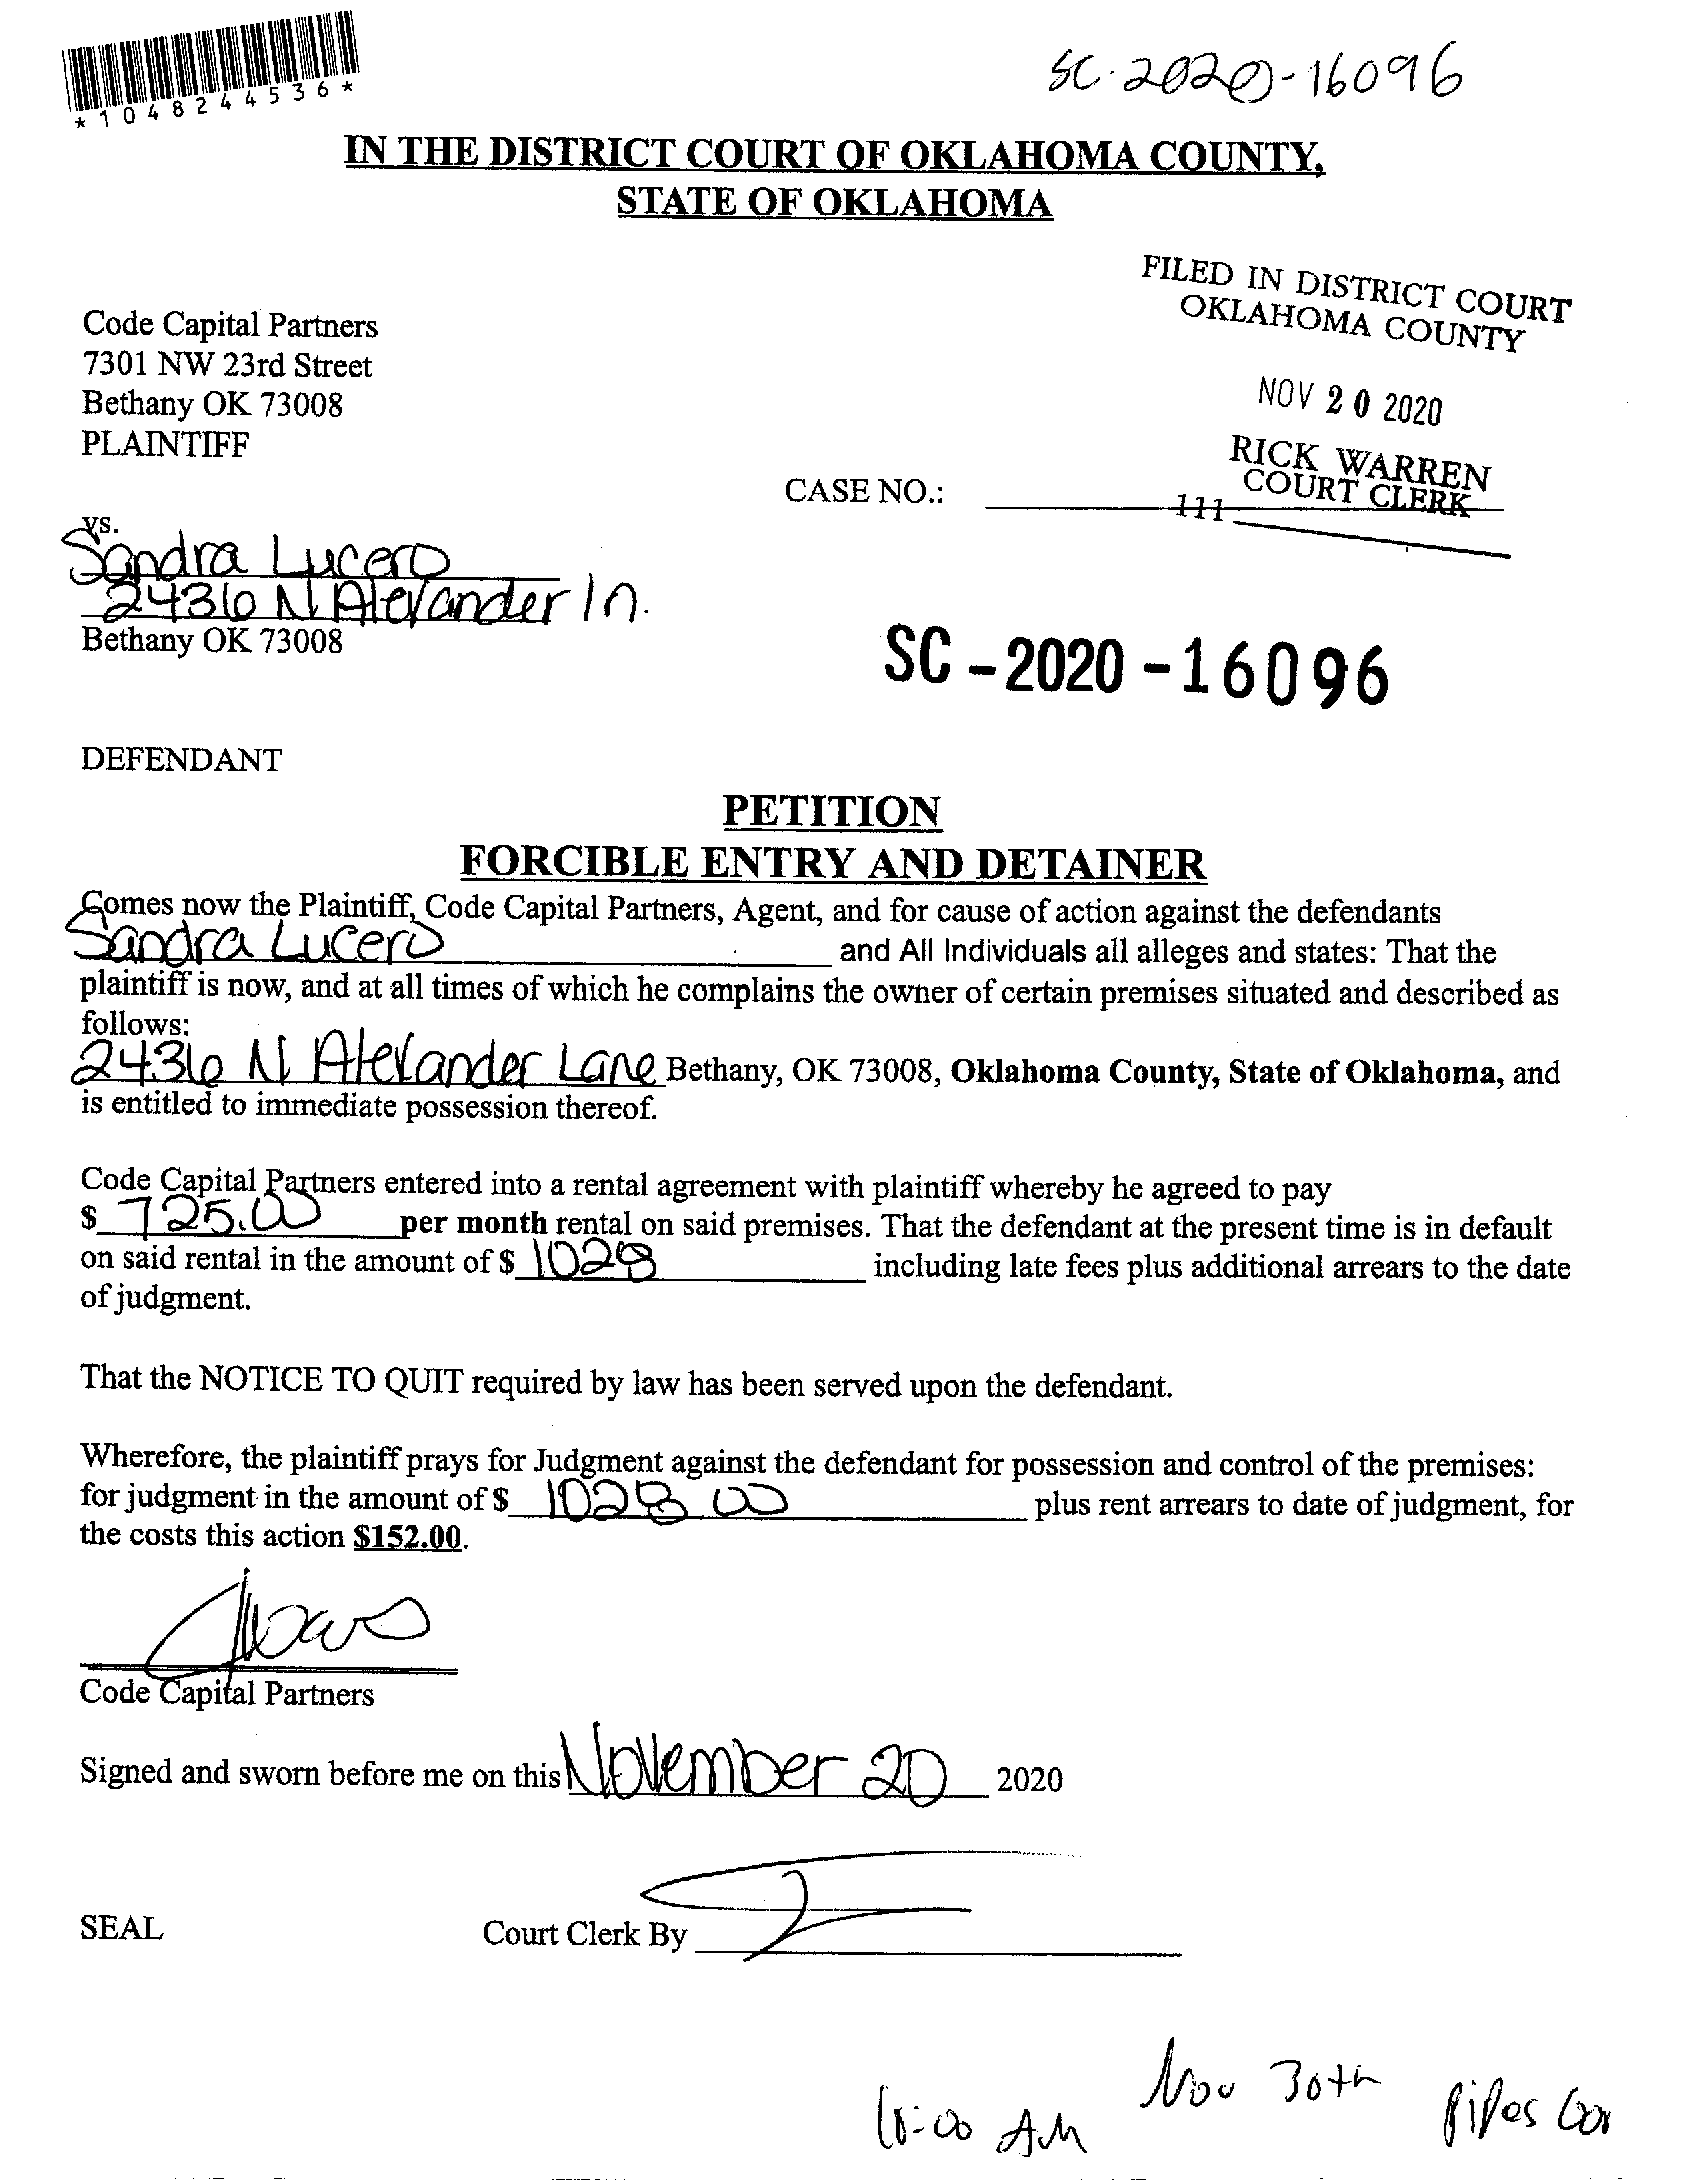 *1048244536*
SC-2020-16096
IN THE DISTRICT COURT OF OKLAHOMA COUNTY,
STATE OF OKLAHOMA
FILED IN DISTRICT COURT
OKLAHOMA COUNTY
NOV 20 2020
RICK WARREN
COURT CLERK
111
Code Capital Partners
7301 NW 23rd Street
Bethany OK 73008
PLAINTIFF
CASE NO.:
vs.
Sandra Lucero
2436 N Alexander ln.
Bethany OK 73008
SC-2020-16096
DEFENDANT
PETITION
FORCIBLE ENTRY AND DETAINER
Comes now the Plaintiff, Code Capital Partners, Agent, and for cause of action against the defendants
Sandra Lucero and All Individuals all alleges and states: That the
plaintiff is now, and at all times of which he complains the owner of certain premises situated and described as
follows:
2436 N Alexander Lane Bethany, OK 73008, Oklahoma County, State of Oklahoma, and
is entitled to immediate possession thereof.
Code Capital Partners entered into a rental agreement with plaintiff whereby he agreed to pay
$ 725.00 per month rental on said premises. That the defendant at the present time is in default
on said rental in the amount of $ 1028 including late fees plus additional arrears to the date
of judgment.
That the NOTICE TO QUIT required by law has been served upon the defendant.
Wherefore, the plaintiff prays for Judgment against the defendant for possession and control of the premises:
for judgment in the amount of $ 1028 00 plus rent arrears to date of judgment, for
the costs this action $152.00.
Code Capital Partners
Signed and sworn before me on this November 20 2020
SEAL Court Clerk By
Nov 30th
AM